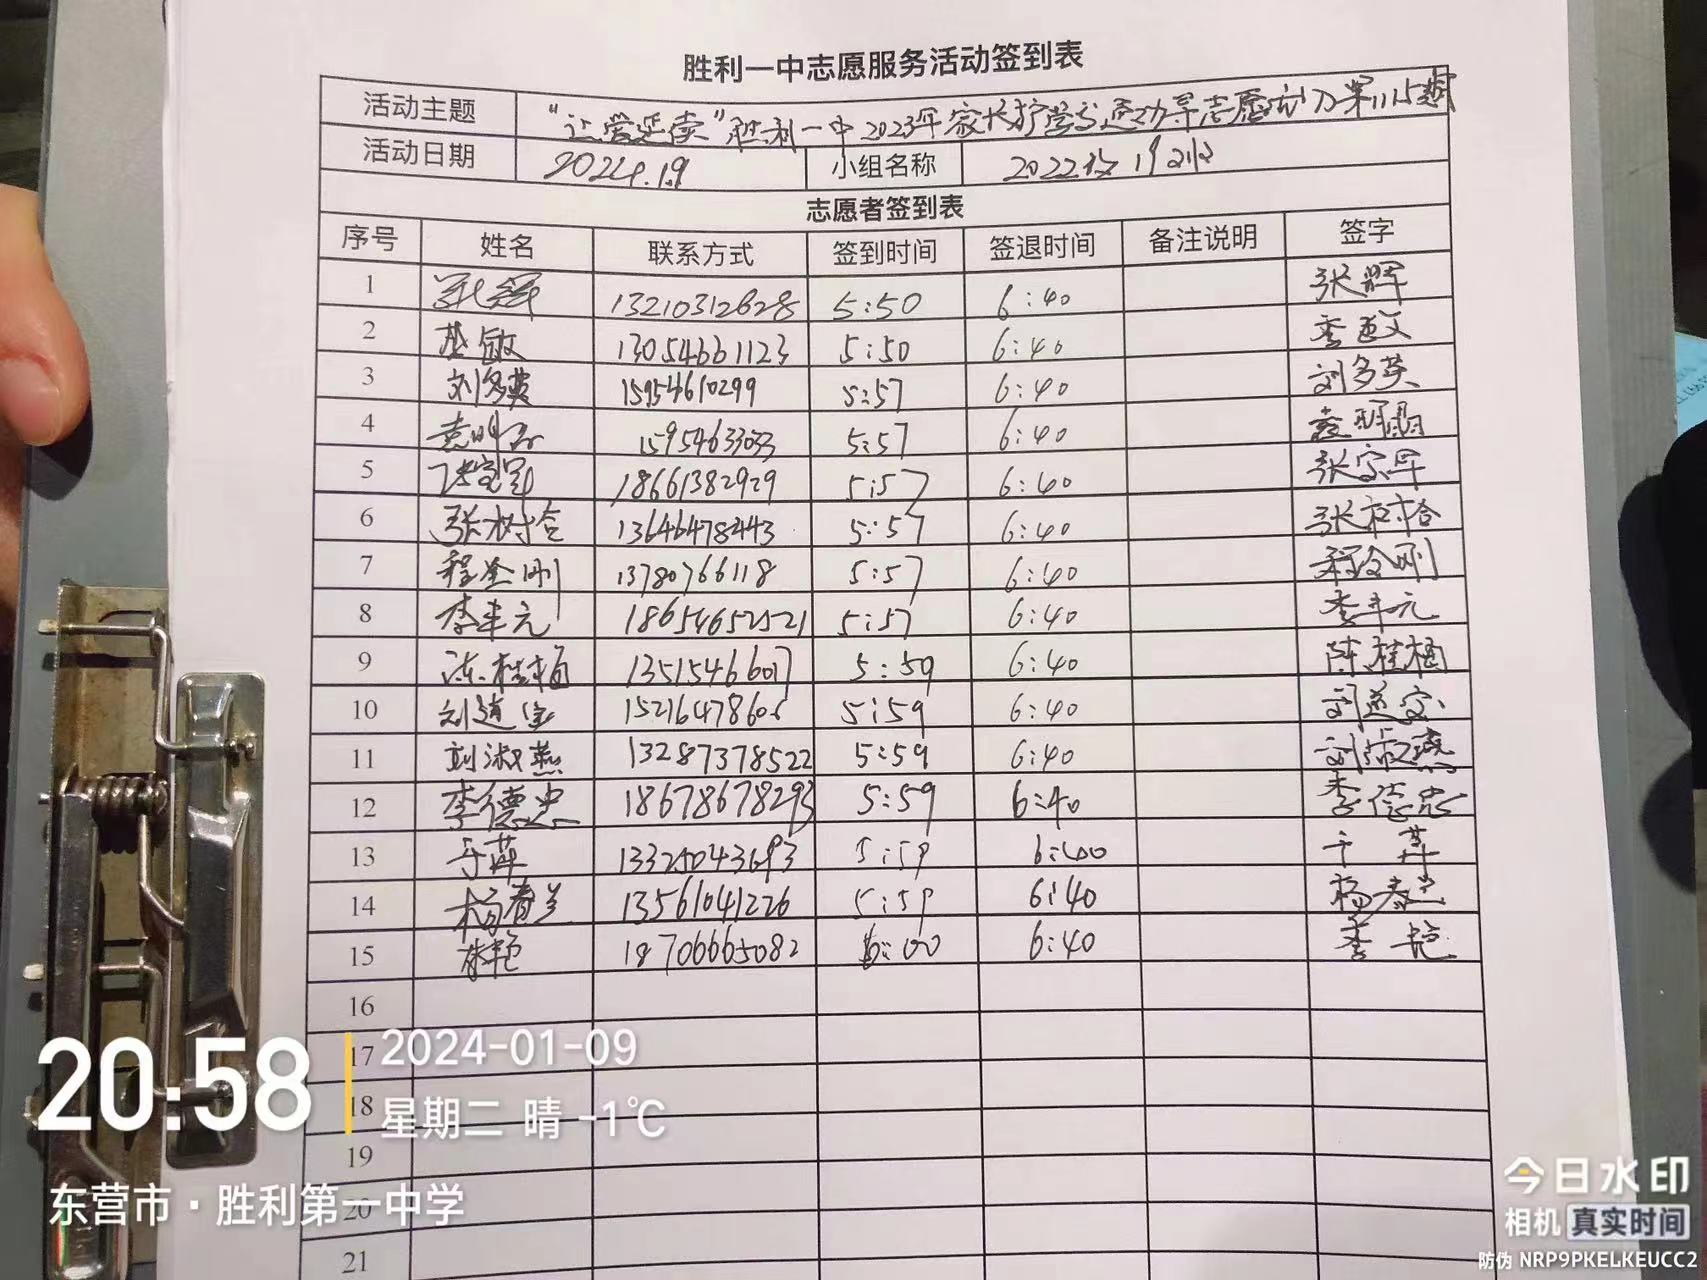 胜利一中志愿服务活动签到表
活动主题 "让爱延续"胜利一中2023年家长护学与交通劝导志愿活动第1115期
活动日期 2024.1.9 小组名称 2022级19班
志愿者签到表
序号 姓名 联系方式 签到时间 签退时间 备注说明 签字
1 张辉 13210312628 5:50 6:40 张辉
2 13054661123 5:50 6:40
3 刘多英 15954610299 5:57 6:40 刘多英
4 袁明晶 15954633033 5:57 6:40 袁明晶
5 张宝军 18661382929 5:57 6:40 张宝军
6 张树合 13646478443 5:57 6:40 张树合
7 程金刚 13780766118 5:57 6:40 程金刚
8 李丰元 18654652521 5:57 6:40 李丰元
9 陈桂梅 13515466017 5:59 6:40 陈桂梅
10 刘道宝 15216478606 5:59 6:40 刘道宝
11 刘淑燕 13287378522 5:59 6:40 刘淑燕
12 李德忠 18678678293 5:59 6:40 李德忠
13 于萍 13325043693 5:59 6:40 于萍
14 杨春兰 13561041226 5:59 6:40 杨春兰
15 李艳 18706665082 6:00 6:40 李艳
16
17
18
19
20
21
20:58
2024-01-09
星期二 晴 -1℃
东营市·胜利第一中学
今日水印
相机 真实时间
防伪 NRP9PKELKEUCC2